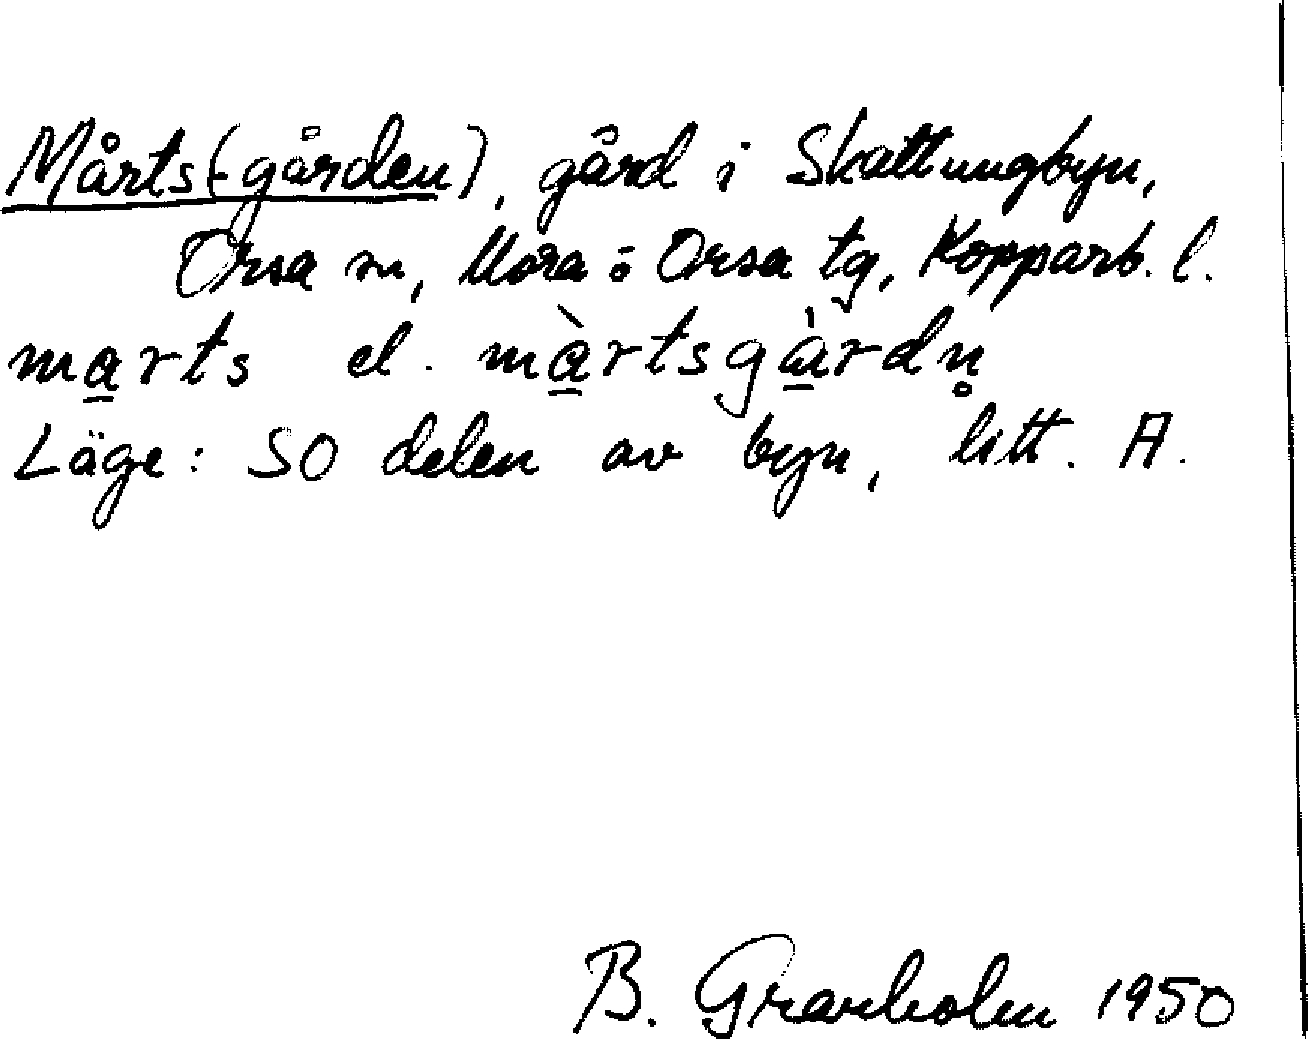 Mårts(-gården), gård i Skattungbyn,
Orsa sn, Mora o Orsa tg, Kopparb. l.
marts el. màrtsgàrdn̥
Läge: SO delen av byn, litt. A.
B. Granholm 1950